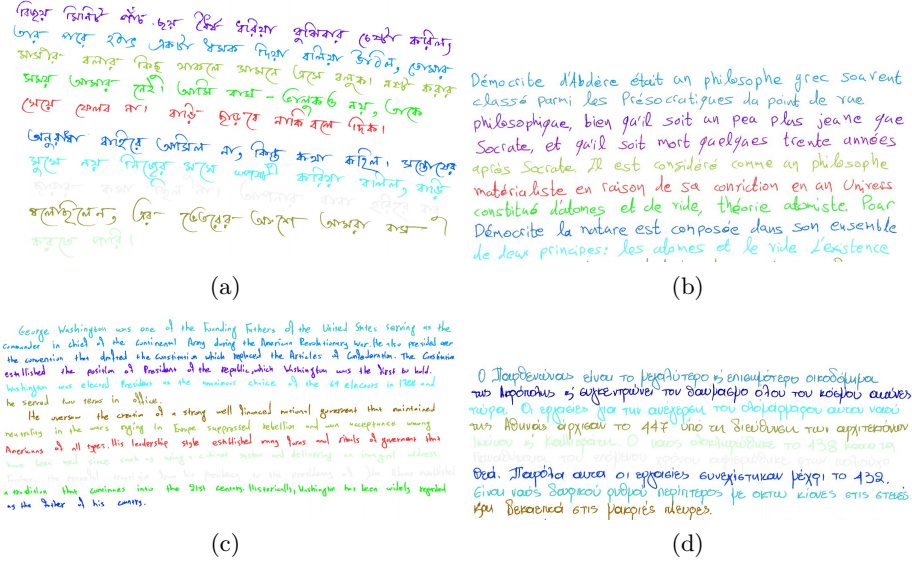 বিজয় মিনিট পাঁচ ছয় ধৈর্য ধরিয়া বুঝিবার চেষ্টা করিল,
তার পরে হঠাৎ একটা ধমক দিয়া বলিয়া উঠিল, তোমার
বলার কিছু থাকলে সামনে এসে বলুক। নষ্ট করার
সময় আমার নেই। আমি বাঘ - ভালুকও নয়, তাকে
খেয়ে ফেলব না। বাড়ি ছাড়বে নাকি বলে দিক।
অনুরাধা বাহিরে আসিল না, কিন্তু কথা কহিল। সন্তোষের
মুখে নয় নিজের মুখে করিয়া বলিল, বাড়ি
কথা ছিল না। আপনার বাবা
বলেছিলেন, এর ভেতরের অংশে আমরা বাস
করতে পারি।
(a)
Démocrite d'Abdère était un philosophe grec souvent
classé parmi les Présocratiques du point de vue
philosophique, bien qu'il soit un peu plus jeune que
Socrate, et qu'il soit mort quelques trente années
après Socrate. Il est considéré comme un philosophe
matérialiste en raison de sa conviction en un Univers
constitué d'atomes et de vide, théorie atomiste. Pour
Démocrite la nature est composée dans son ensemble
de deux principes: les atomes et le vide L'existence
(b)
George Washington was one of the Founding Fathers of the United States serving as the
commander in chief of the Continental Army during the American Revolutionary War. He also presided over
the convention that drafted the Constitution which replaced the Articles of Confederation. The Constitution
established the position of President of the republic, which Washington was the first to hold.
Washington was elected President as the unanimous choice of the 69 electors in 1788 and
he served two terms in office.
He oversaw the creation of a strong well financed national government that maintained
neutrality in the wars raging in Europe suppressed rebellion and won acceptance among
Americans of all types. His leadership style established many forms and rituals of government that
have been used since such as using a cabinet system and delivering an inaugural address.
a tradition that continues into the 21st century. Historically, Washington has been widely regarded
as the father of his country.
(c)
Ο Παρθενώνας είναι το μεγαλύτερο κ επισημότερο οικοδόμημα
της Ακρόπολης κ συγκεντρώνει τον θαυμασμό όλου του κόσμου αιώνες
τώρα. Οι εργασίες για την ανέγερση του ολομάρμαρου αυτού ναού
της Αθηνάς άρχισαν το 447 υπό τη διεύθυνση των αρχιτεκτόνων
Ικτίνου κ Καλλικράτη. Ο ναός ολοκληρώθηκε το 438
θεά. Παρόλα αυτά οι εργασίες συνεχίστηκαν μέχρι το 432.
Είναι ναός δωρικού ρυθμού περίπτερος με οκτώ κίονες στις στενές
και δεκαεπτά στις μακριές πλευρές.
(d)